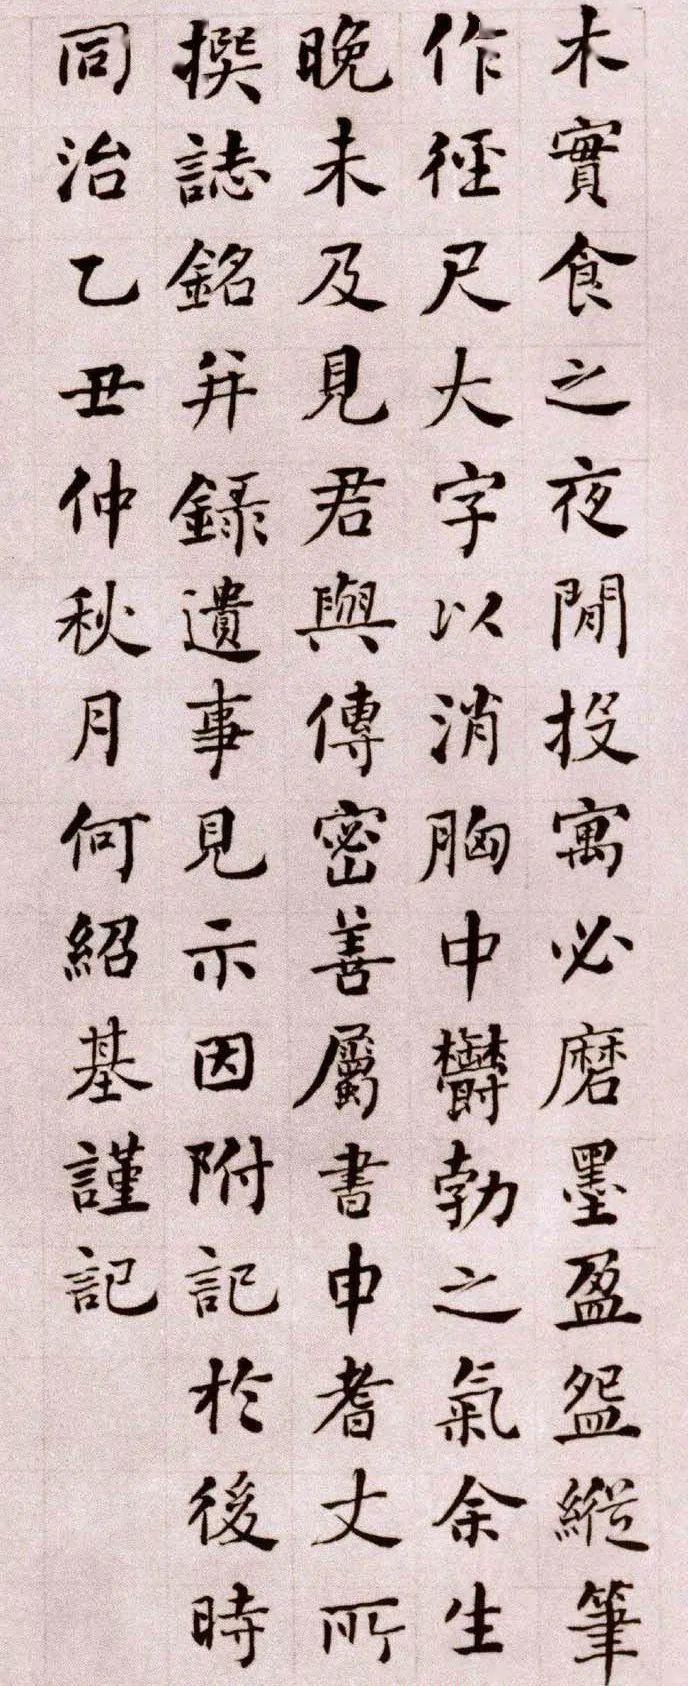 木實食之夜閒投寓必磨墨盈盌縱筆
作徑尺大字以消胸中欝勃之氣余生
晚未及見君與傳密善屬書申耆丈所
撰誌銘并錄遺事見示因附記於後時
同治乙丑仲秋月何紹基謹記